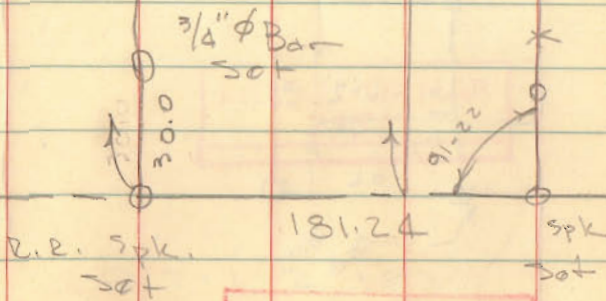 3/4" Ø Bar
Set
30.0
91-22
181.24
R.R. Spk.
Set
Spk
Set